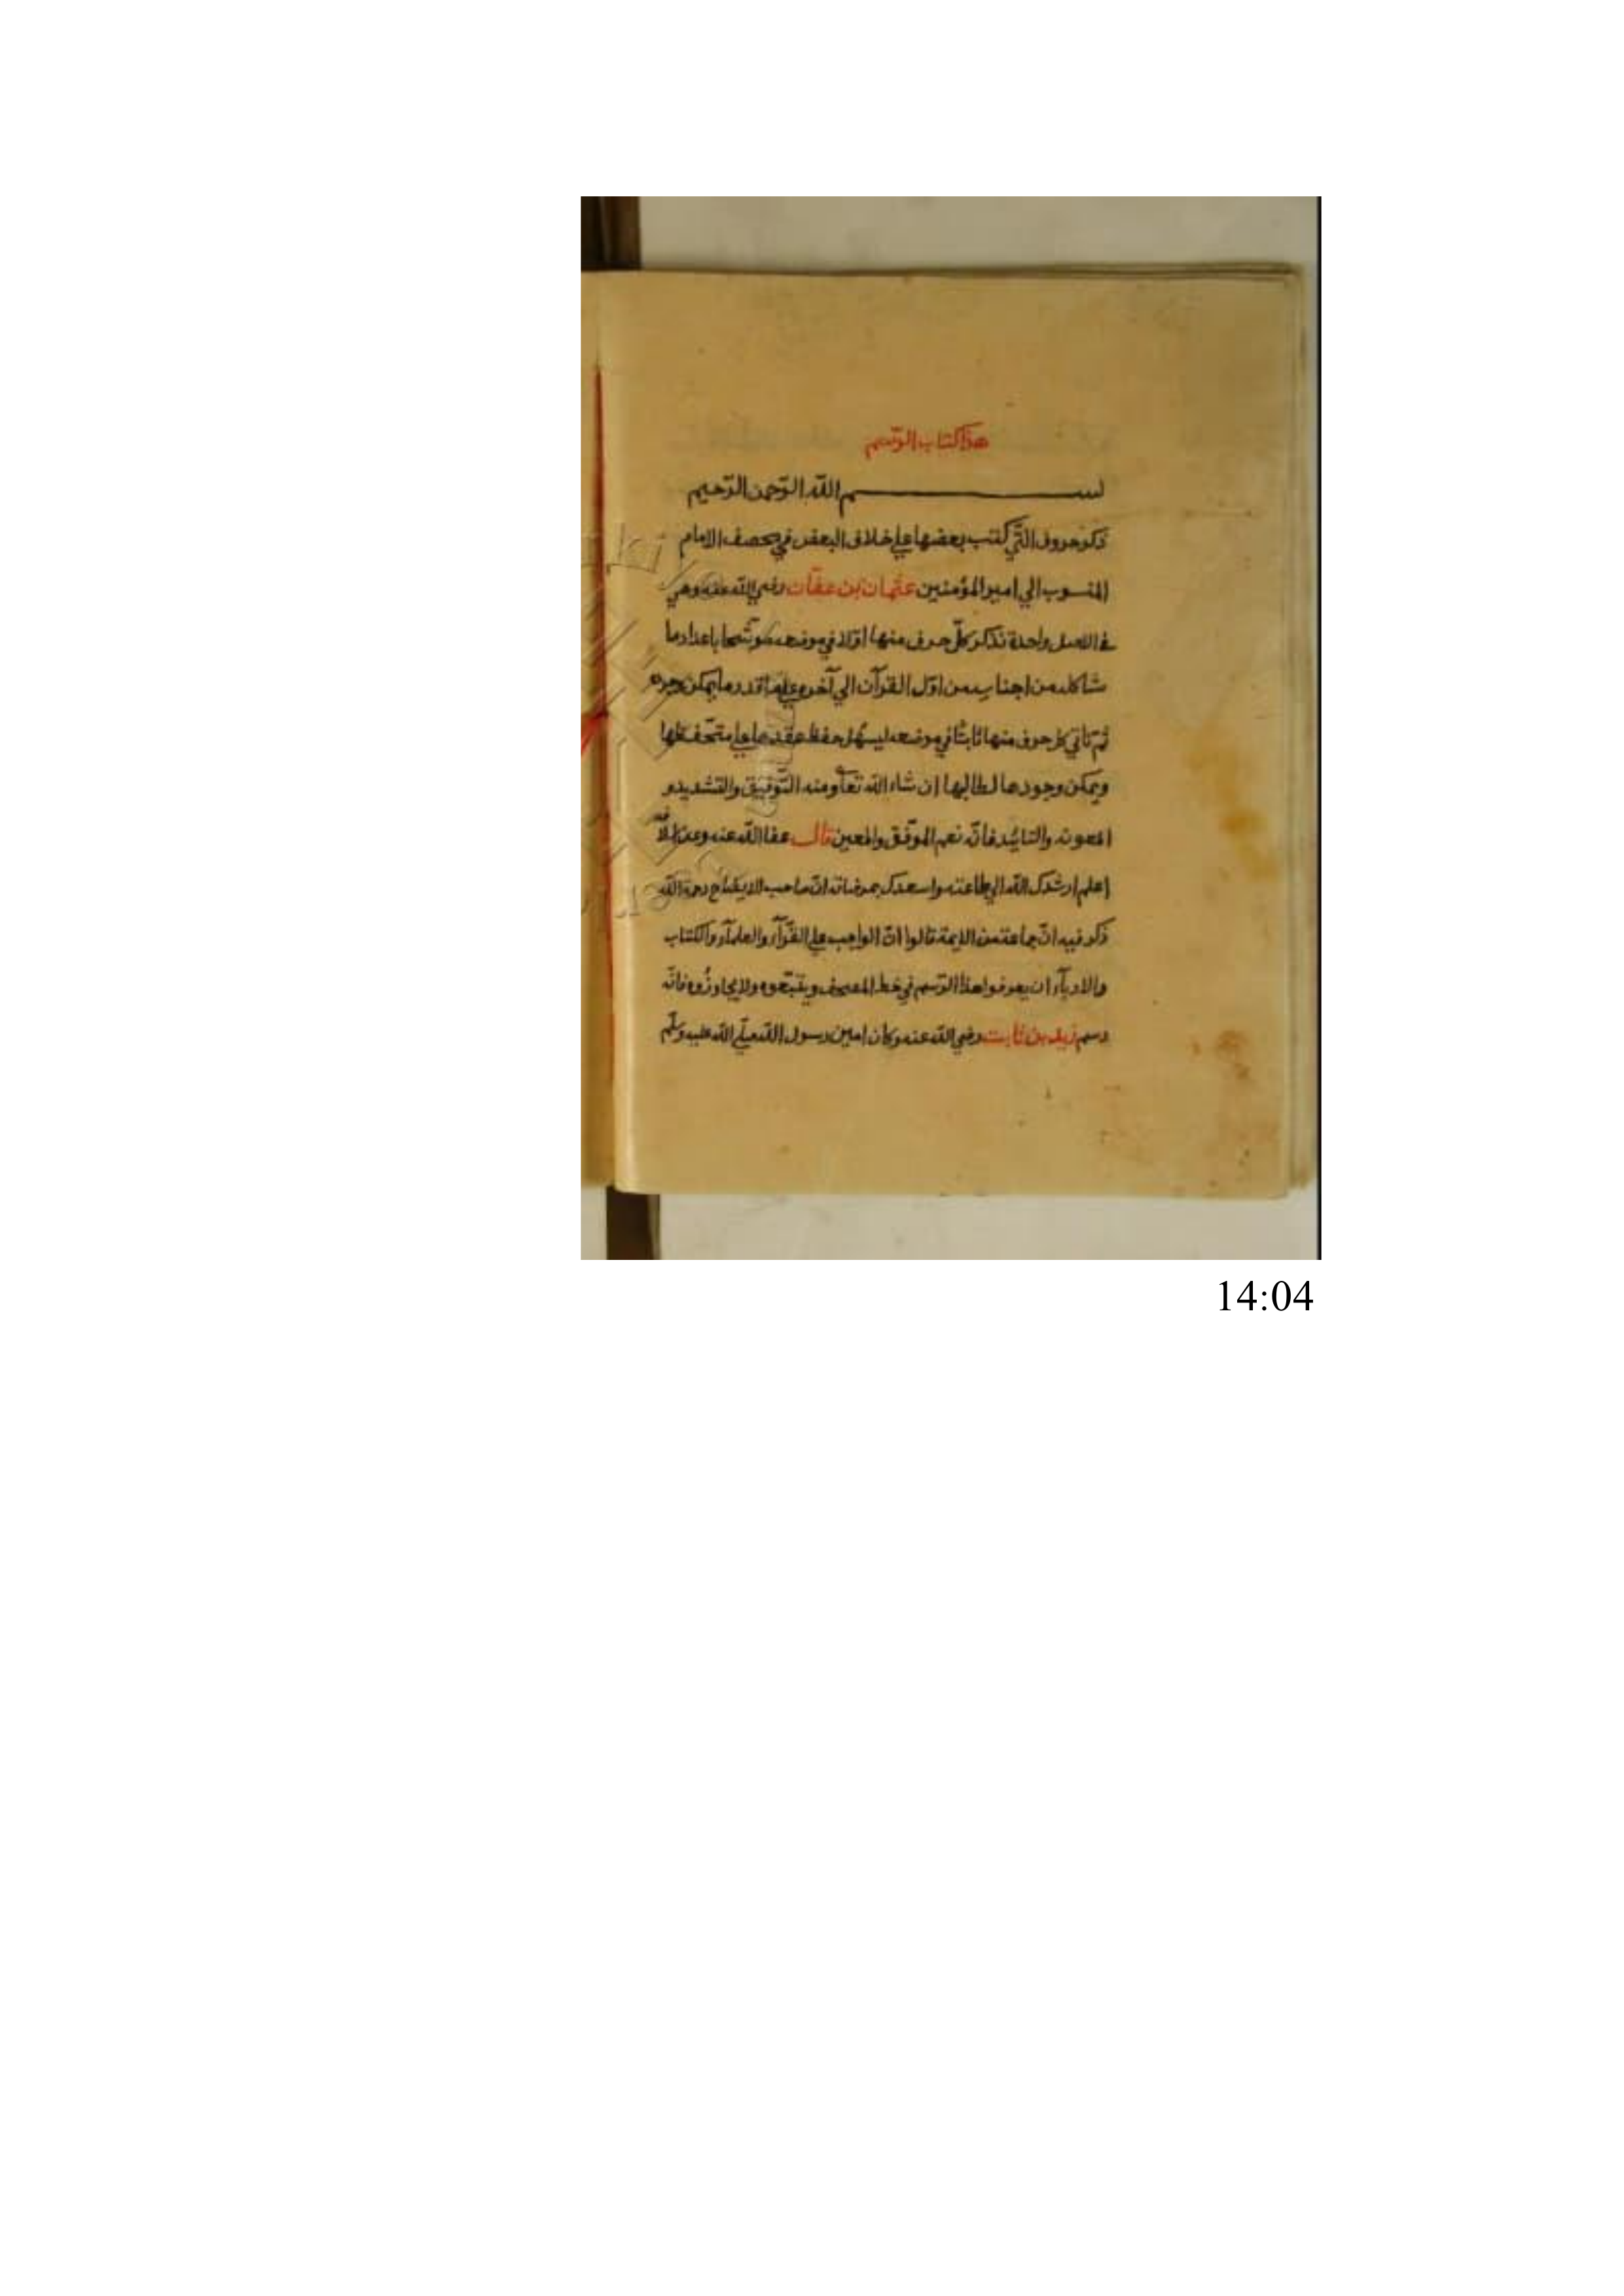 هذا كتاب الرّسم
بسم اللّه الرّحمن الرّحيم
ذكر حروف الّتي كتب بعضها علي خلاف البعض في مصحف الامام
المنسوب الي امير المؤمنين عثمان بن عفّان رضي اللّه عنه وهي
في الاصل واحدة نذكر كلّ حرف منها اوّلا في موضعه موشّحا باعداد ما
شاكله من اجناسه من اوّل القرآن الي آخره علي قدر ما يمكن
ثمّ ناتي كل حرف منها ثابتا في موضعه ليسهل حفظ عقدها علي متحّفظها
ويمكن وجودها لطالبها ان شاء اللّه تعالى ومنه التّوفيق والتشديد و
المعونه والتاييد فانّه نعم الموفّق والمعين قال عفا اللّه عنه وعن
اعلم ارشدك اللّه الي طاعته واسعدك بمرضاته انّ صاحب الايضاح رحمة اللّه
ذكر فيه انّ جماعة من الايمة قالوا انّ الواجب علي القرّآء والعلمآء والكتاب
والادبآء ان يعرفوا هذا الرّسم في خط المصحف ويتبّعوه ولا يجاوزُوه فانّه
رسم زيد بن ثابت رضي اللّه عنه وكان امين رسول اللّه صلّي اللّه عليه وسلّم
14:04